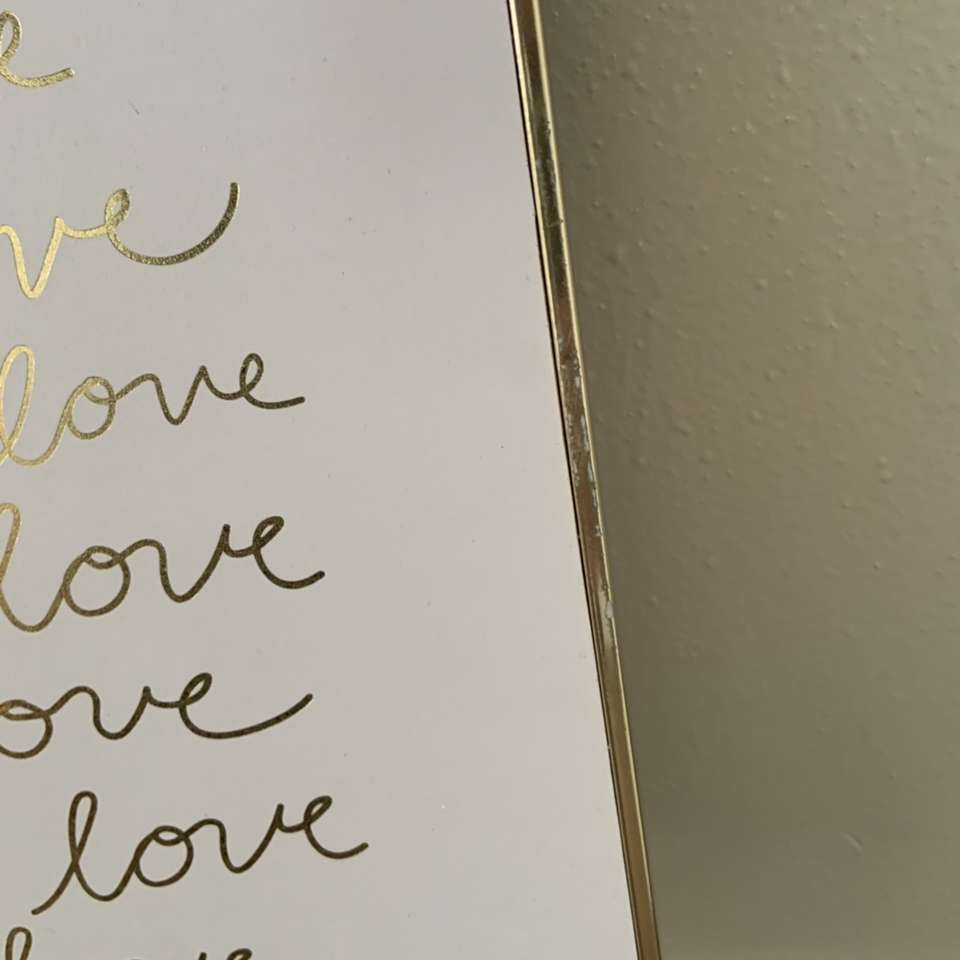 e
ve
love
love
ove
love
love